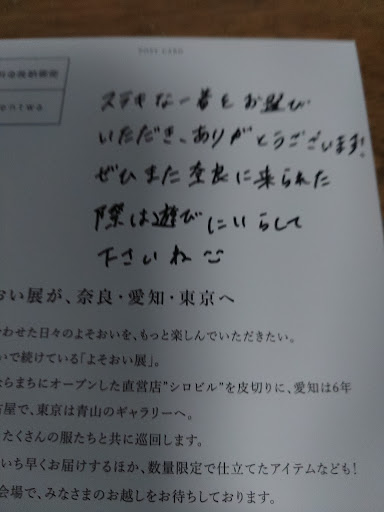 POST CARD
ステキな一着をお選び
いただき、ありがとうございます!
ぜひまた奈良に来られた
際は遊びにいらして
下さいね
おい展が、奈良・愛知・東京へ
わせた日々のよそおいを、もっと楽しんでいただきたい。
いで続けている「よそおい展」。
ならまちにオープンした直営店"シロビル"を皮切りに、愛知は6年
古屋で、東京は青山のギャラリーへ。
たくさんの服たちと共に巡回します。
いち早くお届けするほか、数量限定で仕立てたアイテムなども!
会場で、みなさまのお越しをお待ちしております。